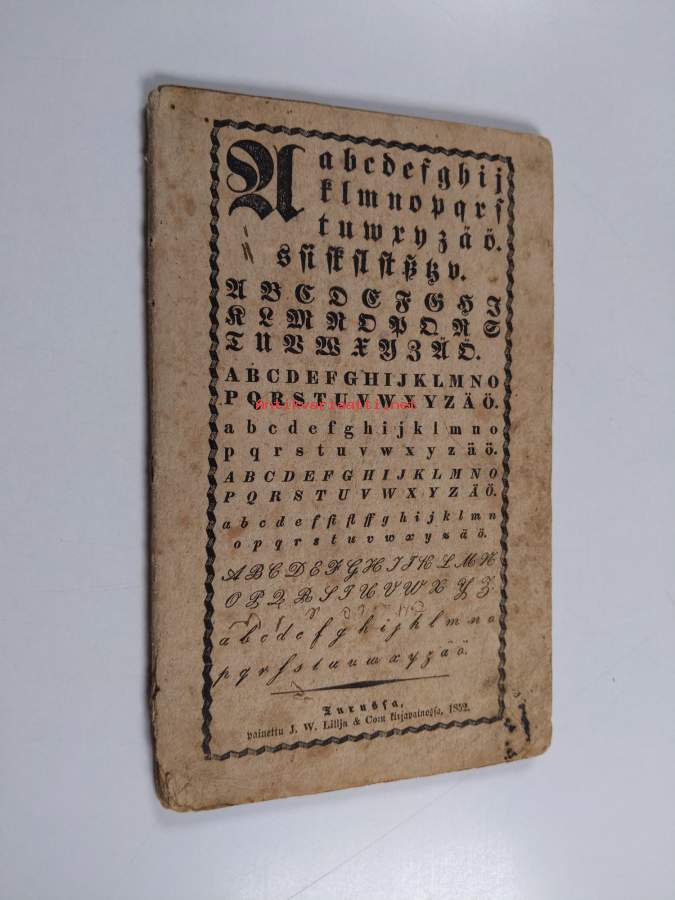 A a b c d e f g h i j
k l m n o p q r ſ
t u w x y z ä ö.
s ſi ſk ſl ſt ß tz v.
A B C D E F G H I
K L M N O P Q R S
T U V W X Y Z Ä Ö.
A B C D E F G H I J K L M N O
P Q R S T U V W X Y Z Ä Ö.
antikvariaatti.net
a b c d e f g h i j k l m n o
p q r s t u v w x y z ä ö.
A B C D E F G H I J K L M N O
P Q R S T U V W X Y Z Ä Ö.
a b c d e f fi fl ff g h i j k l m n
o p q r s t u v w x y z ä ö.
A B C D E F G H I J K L M N
O P Q R S T U V W X Y Z.
a b c d e f g h i j k l m n o
p q r ſ s t u u w x y z ä ö.
Turusſa,
painettu J. W. Lillja & Co:n kirjapainosſa, 1852.